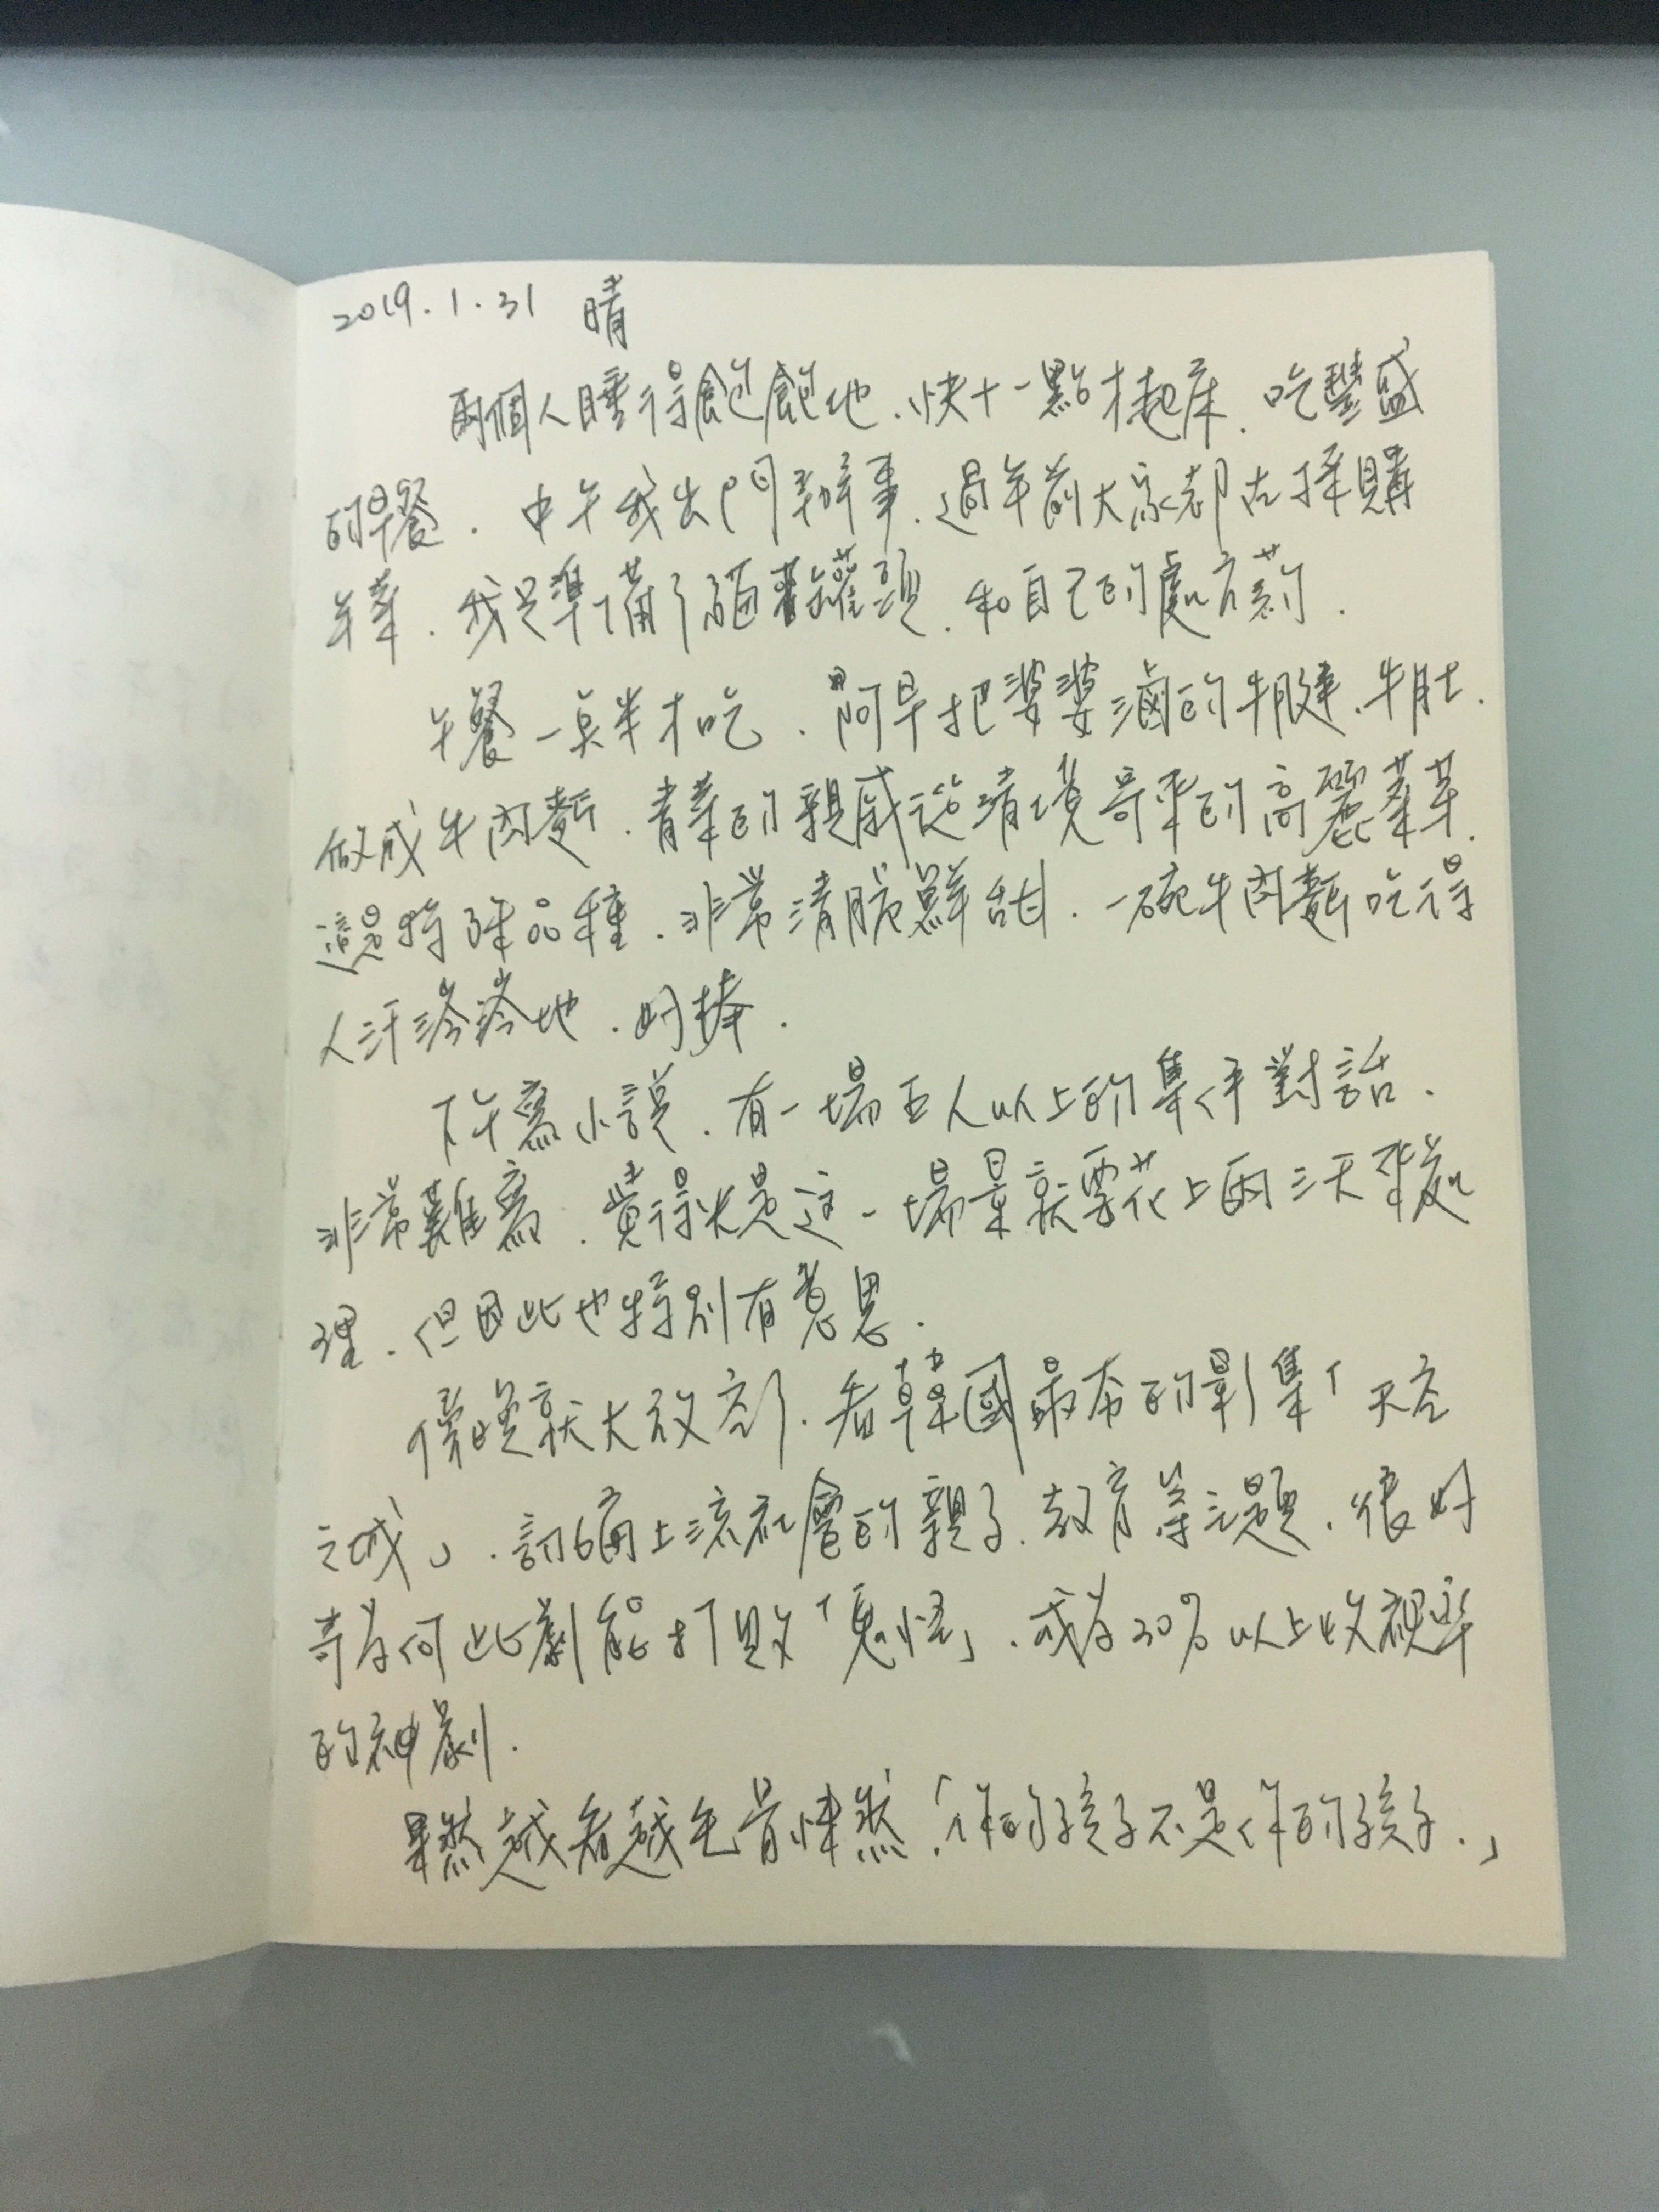 2019.1.31 晴
兩個人睡得飽飽地、快十一點才起床、吃豐盛
的早餐.中午我出門辦事、過年前大家都去採購
年菜.我是準備了貓罐頭、和自己的處方葯.
午餐一點半才吃.阿早把婆婆滷的牛腱、牛肚、
做成牛肉麵.青菜的親戚從清境寄來的高麗菜苗、
還是特殊品種.非常清脆鮮甜.一碗牛肉麵吃得
人汗涔涔地.好棒.
下午寫小說.有一場五人以上的集体對話、
非常難寫.覺得光是這一場景就要花上兩三天來處
理.但因此也特別有意思.
傍晚就大放空了.看韓國最夯的影集「天空
之城」.討論上流社會的親子、教育等主題.很好
奇為何此劇能打敗「鬼怪」、成為20%以上收視率
的神劇.
果然越看越毛骨悚然.「你的孩子不是你的孩子.」